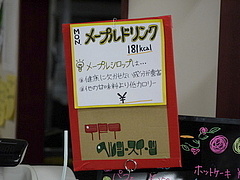 MON
メープルドリンク
181kcal
メープルシロップは…
健康に欠かせない成分が豊富
他の甘味料より低カロリー
¥
ヘルシースイーツ
ホットケーキ